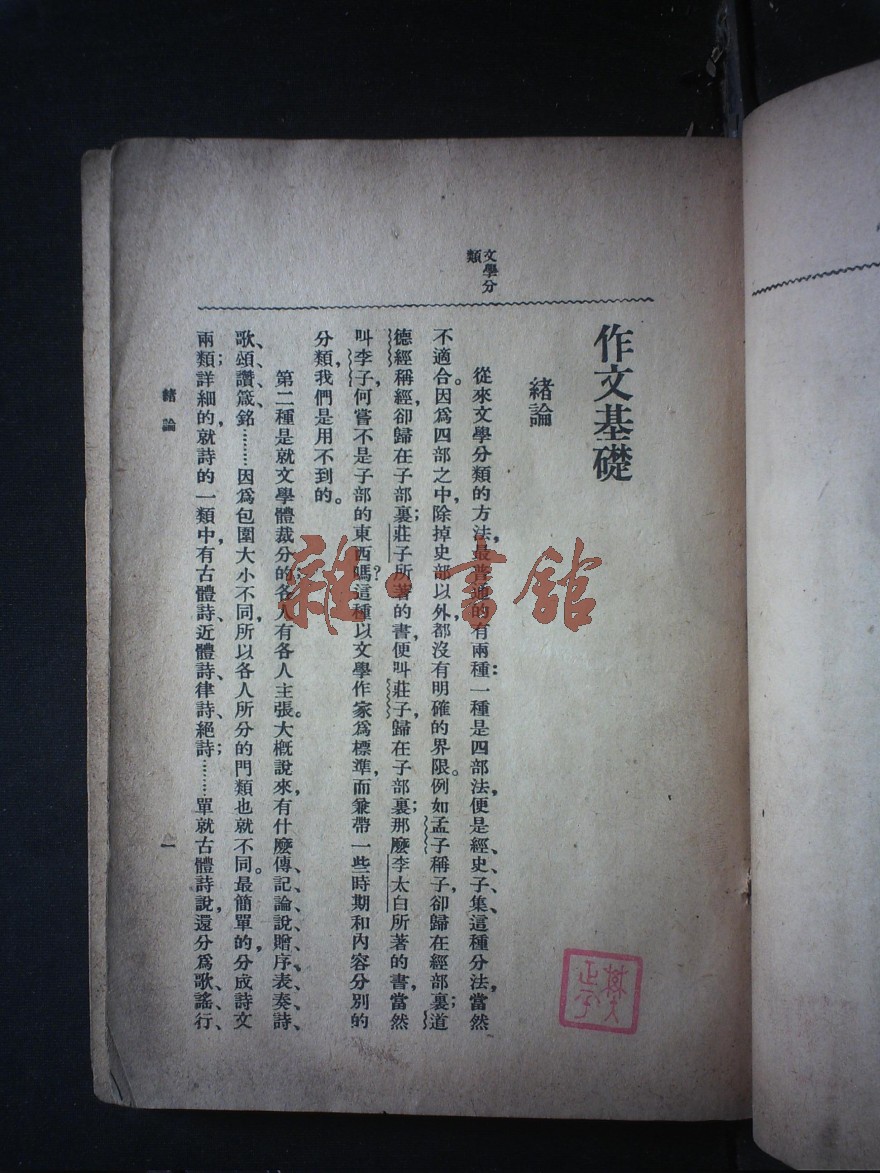 文學分
類
作文基礎
緒論
從來文學分類的方法,最普通的有兩種:一種是四部法,便是經、史、子、集、這種分法,當然
不適合。因爲四部之中,除掉史部以外,都沒有明確的界限。例如孟子稱子,卻歸在經部裏;道
德經稱經,卻歸在子部裏;莊子所著的書,便叫莊子,歸在子部裏;那麽李太白所著的書,當然
叫李子,何嘗不是子部的東西嗎?這種以文學作家爲標準,而兼帶一些時期和內容分別的
分類,我們是用不到的。
第二種是就文學體裁分的;各人有各人主張。大概說來,有什麽傳記、論說、贈序、表奏、詩、
歌、頌、讚、箴、銘………因爲包圍大小不同,所以各人所分的門類也就不同。最簡單的,分成詩文
兩類;詳細的,就詩的一類中,有古體詩、近體詩、律詩、絕詩;………單就古體詩說,還分爲歌、謠、行、
緒論
一
雜·書館